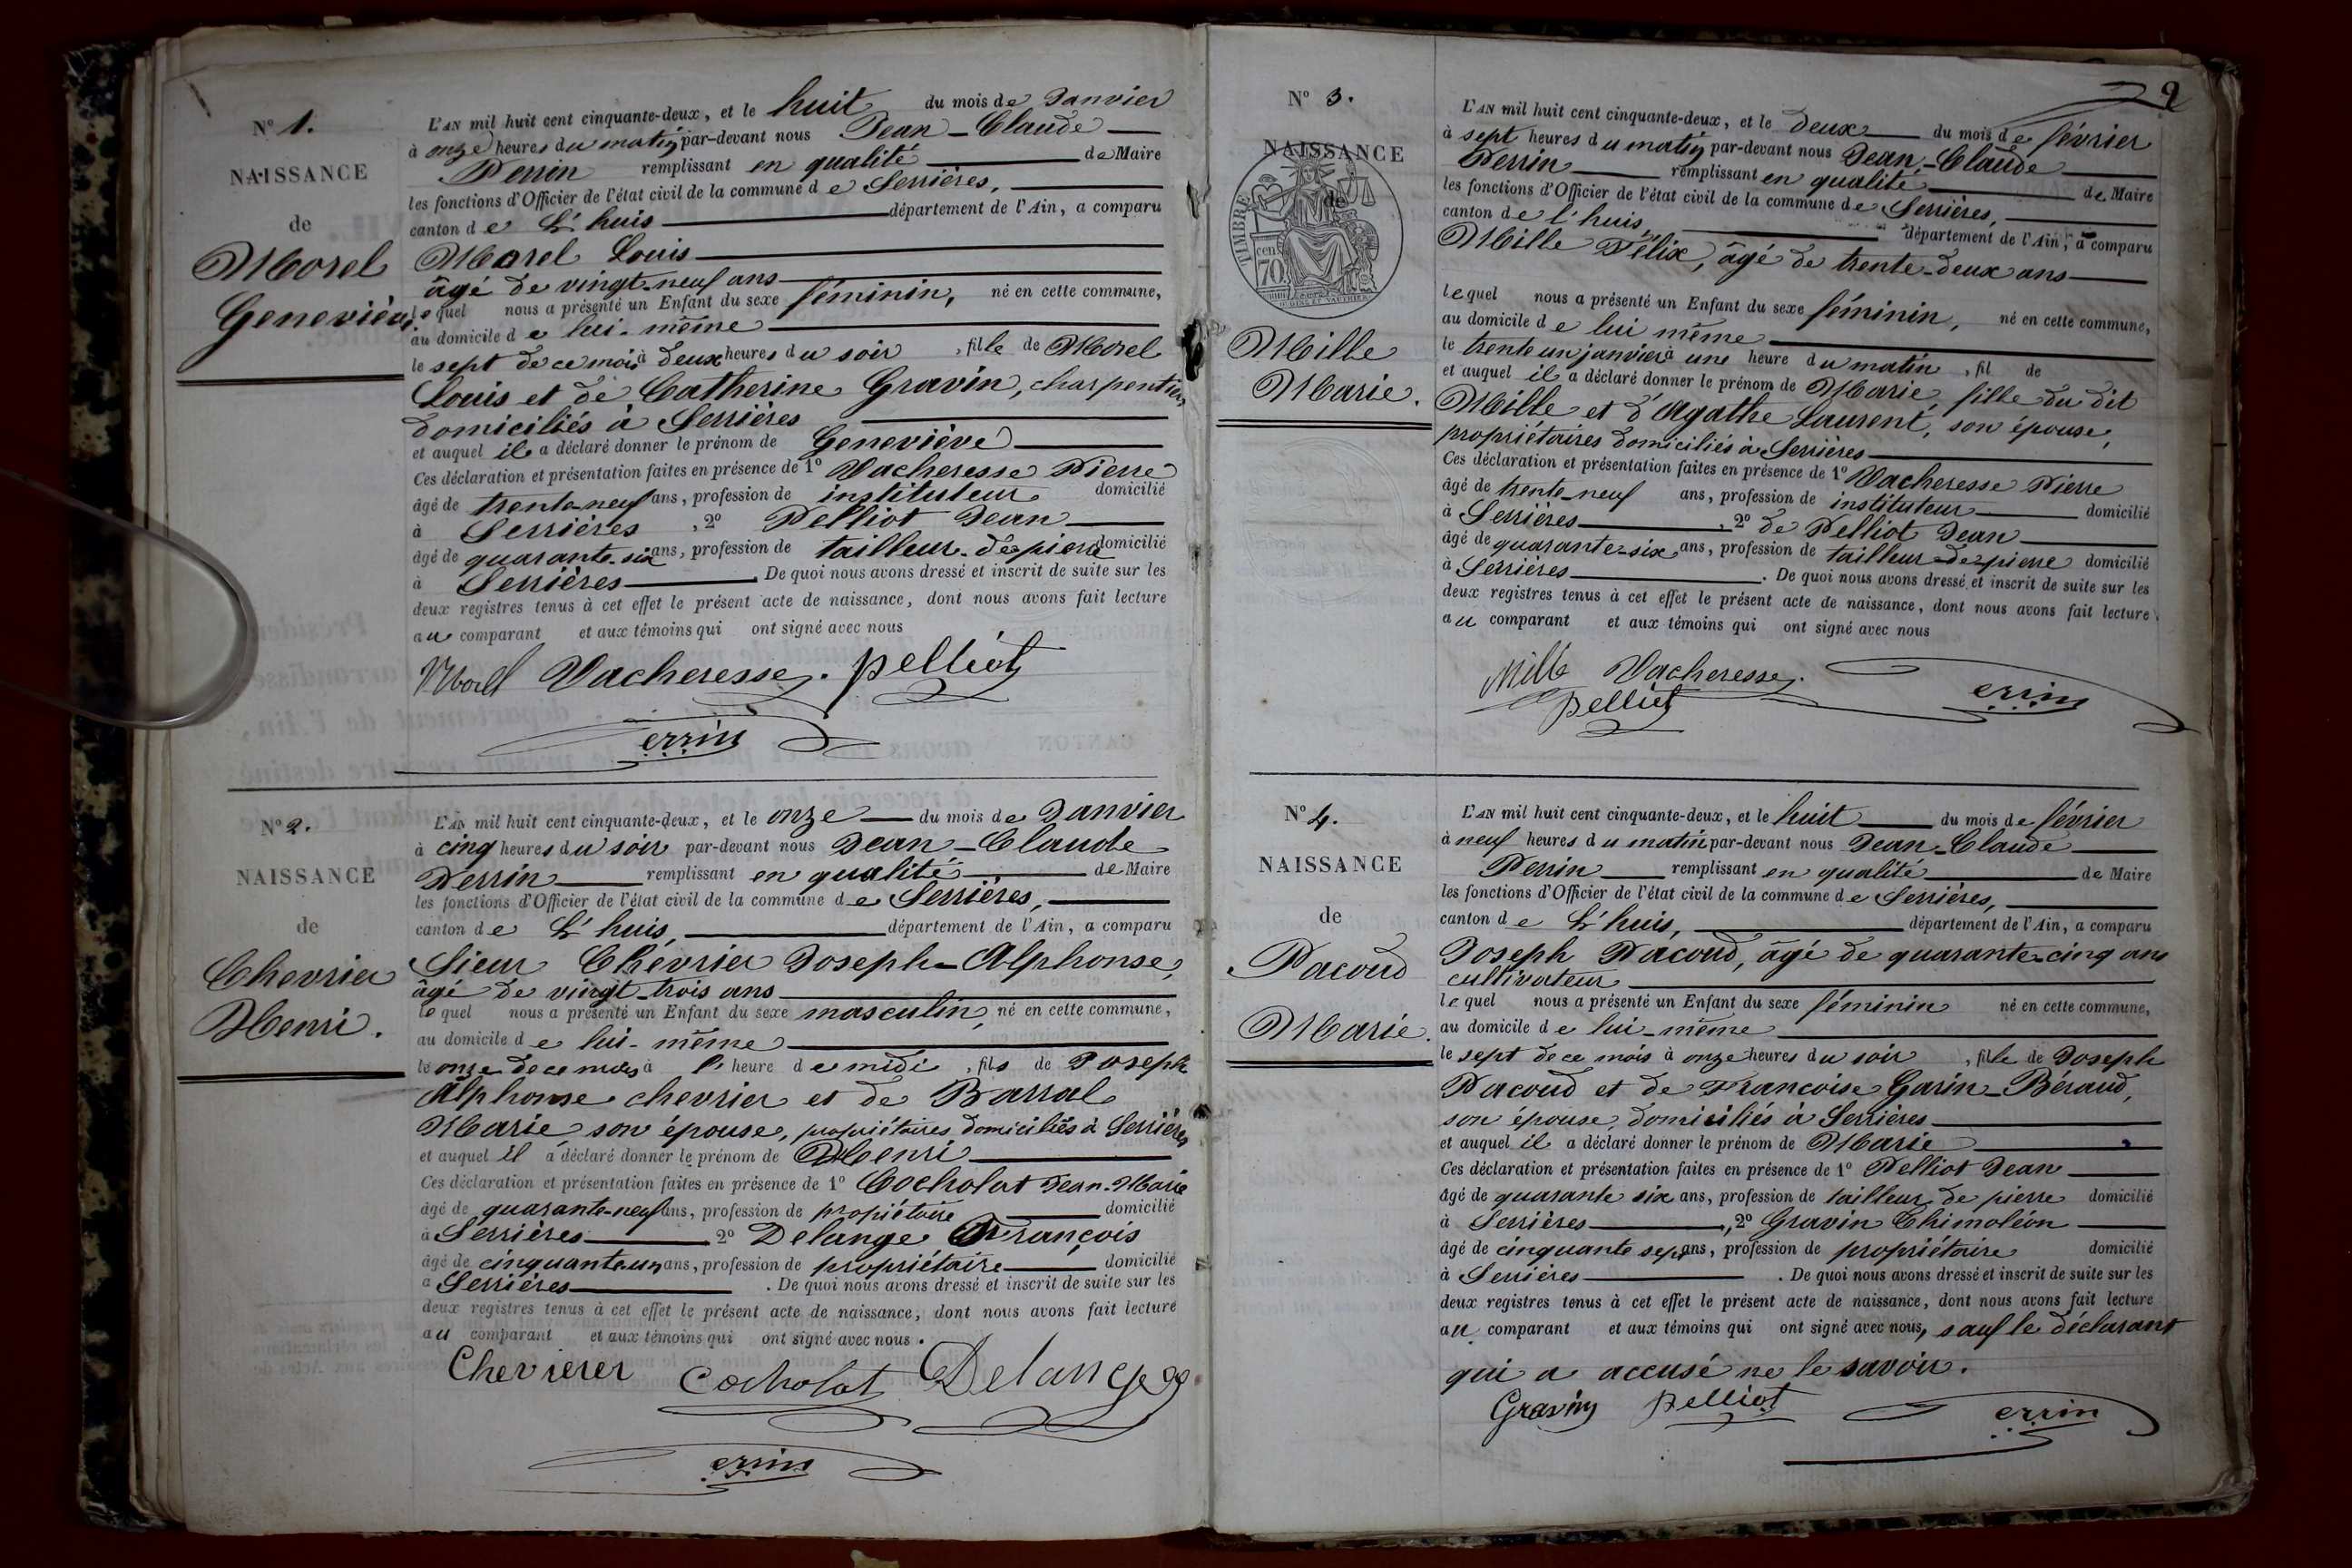 N° 1.
NAISSANCE
de
Morel
Geneviève.
L'AN mil huit cent cinquante-deux, et le huit du mois de Janvier
à onze heures du matin par-devant nous Jean-Claude
Perrin remplissant en qualité de Maire
les fonctions d'Officier de l'état civil de la commune de Serrières,
canton de L'huis département de l'Ain, a comparu
Morel Louis
âgé de vingt-neuf ans
lequel nous a présenté un Enfant du sexe féminin, né en cette commune,
au domicile de lui-même
le sept de ce mois à deux heures du soir, fille de Morel
Louis et de Catherine Gravin, charpentier,
domiciliés à Serrières
et auquel il a déclaré donner le prénom de Geneviève
Ces déclaration et présentation faites en présence de 1° Vacheresse Pierre
âgé de trente-neuf ans, profession de instituteur domicilié
à Serrières, 2° Pelliot Jean
âgé de quarante-six ans, profession de tailleur de pierre domicilié
à Serrières. De quoi nous avons dressé et inscrit de suite sur les
deux registres tenus à cet effet le présent acte de naissance, dont nous avons fait lecture
au comparant et aux témoins qui ont signé avec nous
Morel Vacheresse. pelliot
errin
N° 2.
NAISSANCE
de
Chevrier
Henri.
L'AN mil huit cent cinquante-deux, et le onze du mois de Janvier
à cinq heures du soir par-devant nous Jean-Claude
Perrin remplissant en qualité de Maire
les fonctions d'Officier de l'état civil de la commune de Serrières,
canton de L'huis, département de l'Ain, a comparu
Sieur Chevrier Joseph-Alphonse,
âgé de vingt-trois ans
lequel nous a présenté un Enfant du sexe masculin, né en cette commune,
au domicile de lui-même
le onze de ce mois à l' heure de midi, fils de Joseph
Alphonse chevrier et de Barral
Marie son épouse, propriétaires domiciliés à Serrières
et auquel il a déclaré donner le prénom de Henri
Ces déclaration et présentation faites en présence de 1° Cocholat Jean-Marie
âgé de quarante-neuf ans, profession de propiétaire domicilié
à Serrières 2° Delange François
âgé de cinquante-un ans, profession de propriétaire domicilié
à Serrières. De quoi nous avons dressé et inscrit de suite sur les
deux registres tenus à cet effet le présent acte de naissance, dont nous avons fait lecture
au comparant et aux témoins qui ont signé avec nous.
Chevrierer Cocholat Delange
errin
9
N° 3.
NAISSANCE
de
TIMBRE
cen 70
Mille
Marie.
L'AN mil huit cent cinquante-deux, et le deux du mois de février
à sept heures du matin par-devant nous Jean-Claude
Perrin remplissant en qualité de Maire
les fonctions d'Officier de l'état civil de la commune de Serrières,
canton de l'huis, département de l'Ain, a comparu
Mille Félix, âgé de trente-deux ans
lequel nous a présenté un Enfant du sexe féminin, né en cette commune,
au domicile de lui même
le trente un janvier à une heure du matin, fil de
et auquel il a déclaré donner le prénom de Marie, fille du dit
Mille et d'Agathe Laurent, son épouse,
propriétaires domiciliés à Serrières
Ces déclaration et présentation faites en présence de 1° Vacheresse Pierre
âgé de trente-neuf ans, profession de instituteur domicilié
à Serrières, 2° de Pelliot Jean
âgé de quarante-six ans, profession de tailleur de pierre domicilié
à Serrières. De quoi nous avons dressé et inscrit de suite sur les
deux registres tenus à cet effet le présent acte de naissance, dont nous avons fait lecture
au comparant et aux témoins qui ont signé avec nous
Mille Vacheresse.
pelliot errin
N° 4.
NAISSANCE
de
Pacoud
Marie.
L'AN mil huit cent cinquante-deux, et le huit du mois de février
à neuf heures du matin par-devant nous Jean-Claude
Perrin remplissant en qualité de Maire
les fonctions d'Officier de l'état civil de la commune de Serrières,
canton de L'huis, département de l'Ain, a comparu
Joseph Pacoud, âgé de quarante-cinq ans
cultivateur
lequel nous a présenté un Enfant du sexe féminin né en cette commune,
au domicile de lui-même
le sept de ce mois à onze heures du soir, fille de Joseph
Pacoud et de Francoise Garin-Béraud,
son épouse, domiciliés à Serrières
et auquel il a déclaré donner le prénom de Marie
Ces déclaration et présentation faites en présence de 1° Pelliot Jean
âgé de quarante six ans, profession de tailleur de pierre domicilié
à Serrières, 2° Gravin Thimoléon
âgé de cinquante sept ans, profession de propriétaire domicilié
à Serrières. De quoi nous avons dressé et inscrit de suite sur les
deux registres tenus à cet effet le présent acte de naissance, dont nous avons fait lecture
au comparant et aux témoins qui ont signé avec nous, sauf le déclarant
qui a accusé ne le savoir.
Gravin pelliot errin